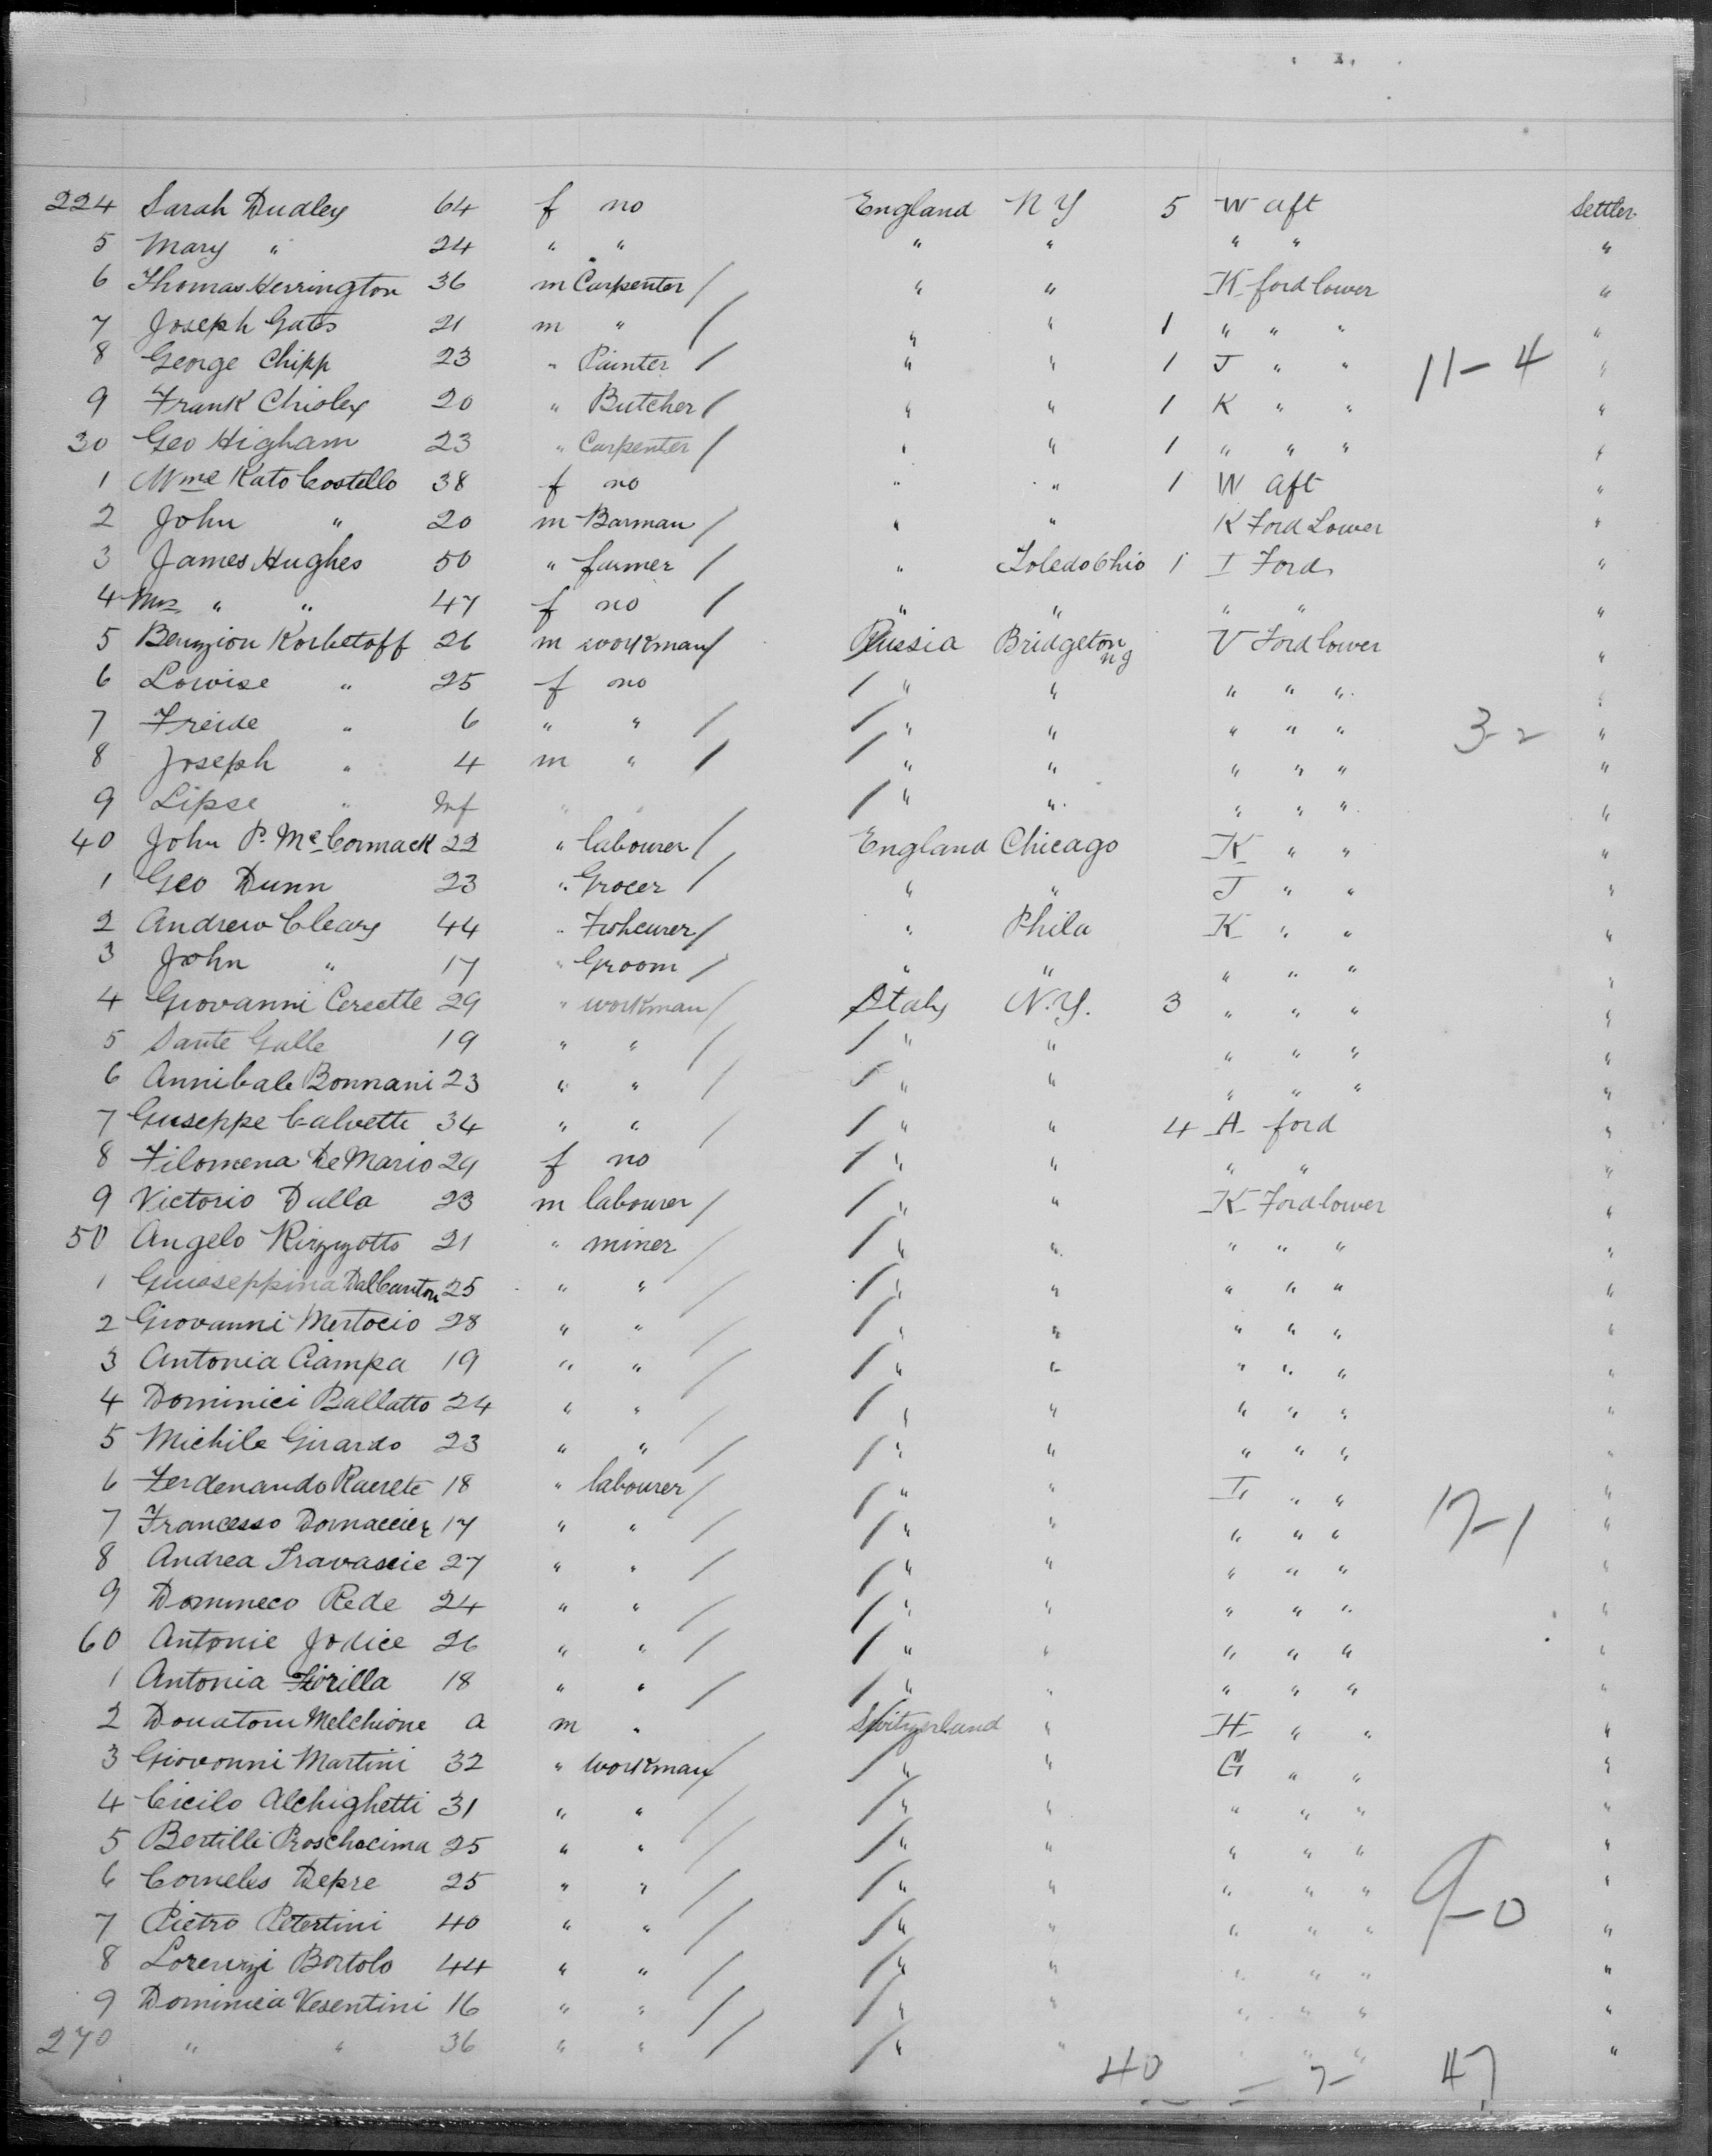 224 Sarah Dudley 64 f no England N Y 5 W aft Settler
5 Mary " 24 " " " " " " "
6 Thomas Herrington 36 m Carpenter / " " K ford lower "
7 Joseph Gates 21 m " / " " 1 " " " "
8 George Chipp 23 " Painter / " " 1 J " " 11-4 "
9 Frank Chisley 20 " Butcher / " " 1 K " " "
30 Geo Higham 23 " Carpenter / " " 1 " " " "
1 Mme Kato Costello 38 f no " " 1 W aft "
2 John " 20 m Barman / " " K Ford Lower "
3 James Hughes 50 " farmer / " Toledo Ohio 1 I Ford "
4 Mrs " " 47 f no / " " " " "
5 Benzion Korbetoff 26 m workman / Russia Bridgeton n g V Ford lower "
6 Lowise " 25 f no / " " " " " "
7 Freide " 6 " " / / " " " " " 3-2 "
8 Joseph " 4 m " / / " " " " " "
9 Lipse " Inf " " / " " " " " "
40 John P. McCormack 22 " labourer / England Chicago K " " "
1 Geo Dunn 23 " Grocer / " " J " " "
2 Andrew Cleary 44 " / " Phila K " " "
3 John " 17 " Groom / " " " " " "
4 Giovanni Cereette 29 " workman / Italy N.Y. 3 " " " "
5 Sante Galle 19 " " / / " " " " " "
6 Annibale Bonnani 23 " " / / " " " " " "
7 Guseppe Calvette 34 " " / / " " 4 A ford "
8 Filomena De Mario 29 f no / " " " " "
9 Victorio Dalla 23 m labourer / / " " K Ford lower "
50 Angelo Rizzyotto 21 " miner / / " " " " " "
1 Guiaseppina DalCanton 25 " " / / " " " " " "
2 Giovanni Mertocio 28 " " / / " " " " " "
3 Antonia Ciampa 19 " " / / " " " " " "
4 Dominici Ballatto 24 " " / / " " " " " "
5 Michile Girardo 23 " " / / " " " " " "
6 Ferdenando Raerete 18 " labourer / / " " I " " "
7 Francesso 17 " " / / " " " " " 17-1 "
8 Andrea Travascie 27 " " / / " " " " " "
9 Dommeco Rede 24 " " / / " " " " " "
60 Antonie Jodice 26 " " / / " " " " " "
1 Antonia Fiorilla 18 " " / / " " " " " "
2 Donatom Melchione a m " Switzerland " H " " "
3 Giovonni Martini 32 " workman / / " " G " " "
4 Cicilo Alchighetti 31 " " / / " " " " " "
5 Bertilli Proschocima 25 " " / / " " " " " "
6 Corneles Depre 25 " " / / " " " " " 9-0 "
7 Pietro Petertini 40 " " / / " " " " " "
8 Lorenzi Bortolo 44 " " / / " " " " " "
9 Dominica Vesentini 16 " " / / " " " " " "
270 " " 36 " " / / " " " " " "
40 - 7 - 47